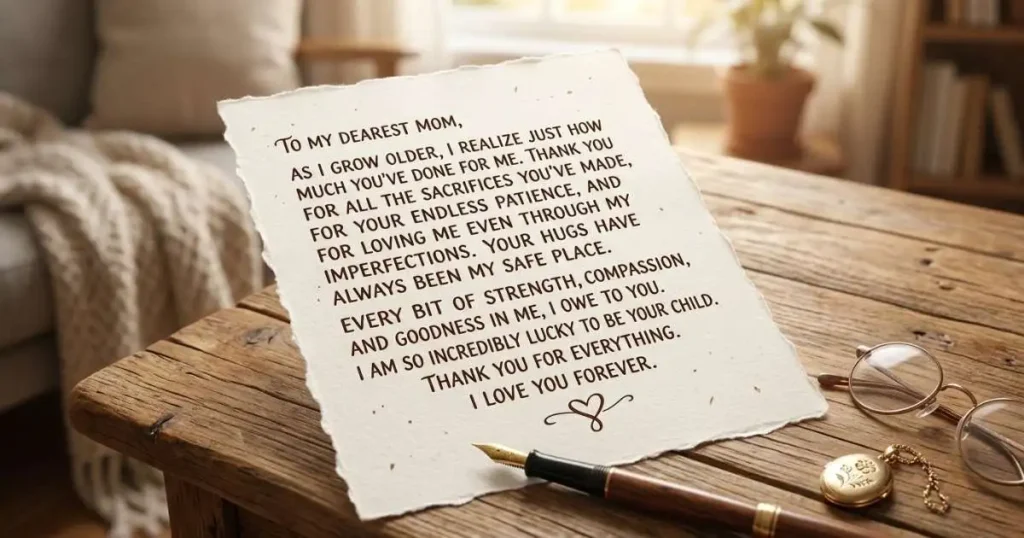 TO MY DEAREST MOM,
AS I GROW OLDER, I REALIZE JUST HOW
MUCH YOU'VE DONE FOR ME. THANK YOU
FOR ALL THE SACRIFICES YOU'VE MADE,
FOR YOUR ENDLESS PATIENCE, AND
FOR LOVING ME EVEN THROUGH MY
IMPERFECTIONS. YOUR HUGS HAVE
ALWAYS BEEN MY SAFE PLACE.
EVERY BIT OF STRENGTH, COMPASSION,
AND GOODNESS IN ME, I OWE TO YOU.
I AM SO INCREDIBLY LUCKY TO BE YOUR CHILD.
THANK YOU FOR EVERYTHING.
I LOVE YOU FOREVER.